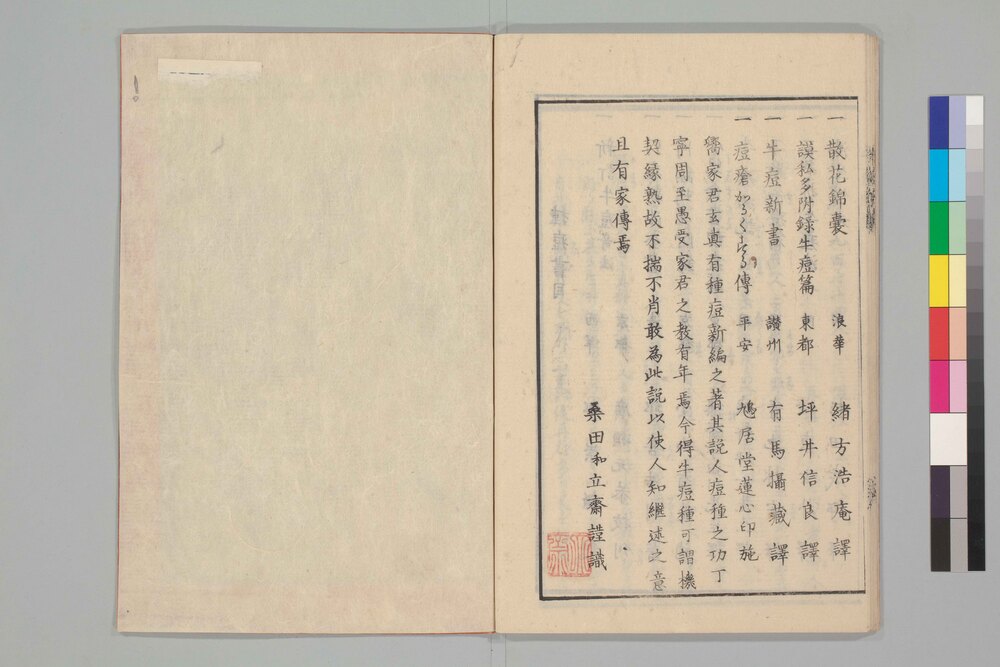 一 散花錦囊 浪華 緒方浩庵譯
一 謨私多附錄牛痘篇 東都 坪井信良譯
一 牛痘新書 讃州 有馬攝藏譯
一 痘瘡かろくする傳 平安 鳩居堂蓮心印施
喬家君玄真有種痘新編之著其說人痘種之功丁
寧周至愚受家君之教有年焉今得牛痘種可謂機
契緣熟故不揣不肖敢為此說以使人知繼述之意
且有家傳焉
桑田和立齋謹識